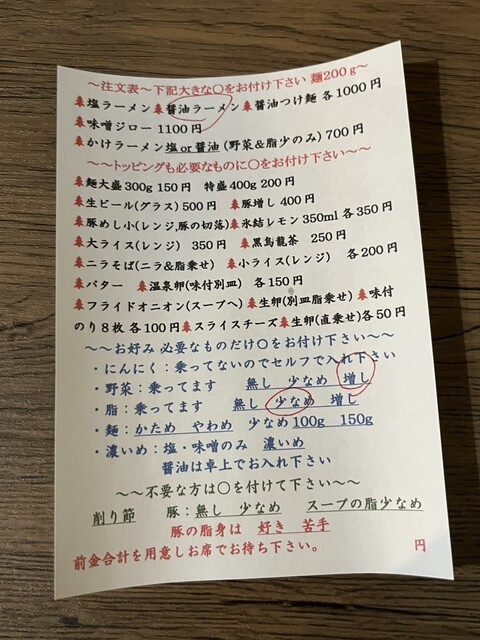 ～注文表～下記大きな〇をお付け下さい 麺200ｇ～
塩ラーメン 醤油ラーメン 醤油つけ麺 各1000円
味噌ジロー 1100円
かけラーメン塩or醤油(野菜&脂少のみ)700円
～～トッピングも必要なものに〇をお付け下さい～～
麺大盛300g 150円 特盛400g 200円
生ビール(グラス)500円 豚増し 400円
豚めし小(レンジ,豚の切落) 氷結レモン350ml 各350円
大ライス(レンジ) 350円 黒烏龍茶 250円
ニラそば(ニラ&脂乗せ) 小ライス(レンジ) 各200円
バター 温泉卵(味付別皿) 各150円
フライドオニオン(スープへ) 生卵(別皿脂乗せ) 味付
のり8枚 各100円 スライスチーズ 生卵(直乗せ)各50円
～～お好み 必要なものだけ〇をお付け下さい～～
・にんにく：乗ってないのでセルフで入れ下さい
・野菜：乗ってます 無し 少なめ 増し
・脂：乗ってます 無し 少なめ 増し
・麺：かため やわめ 少なめ100g 150g
・濃いめ：塩・味噌のみ 濃いめ
醤油は卓上でお入れ下さい
～～不要な方は〇を付けて下さい～～
削り節 豚：無し 少なめ スープの脂少なめ
豚の脂身は 好き 苦手
前金合計を用意しお席でお待ち下さい。 円